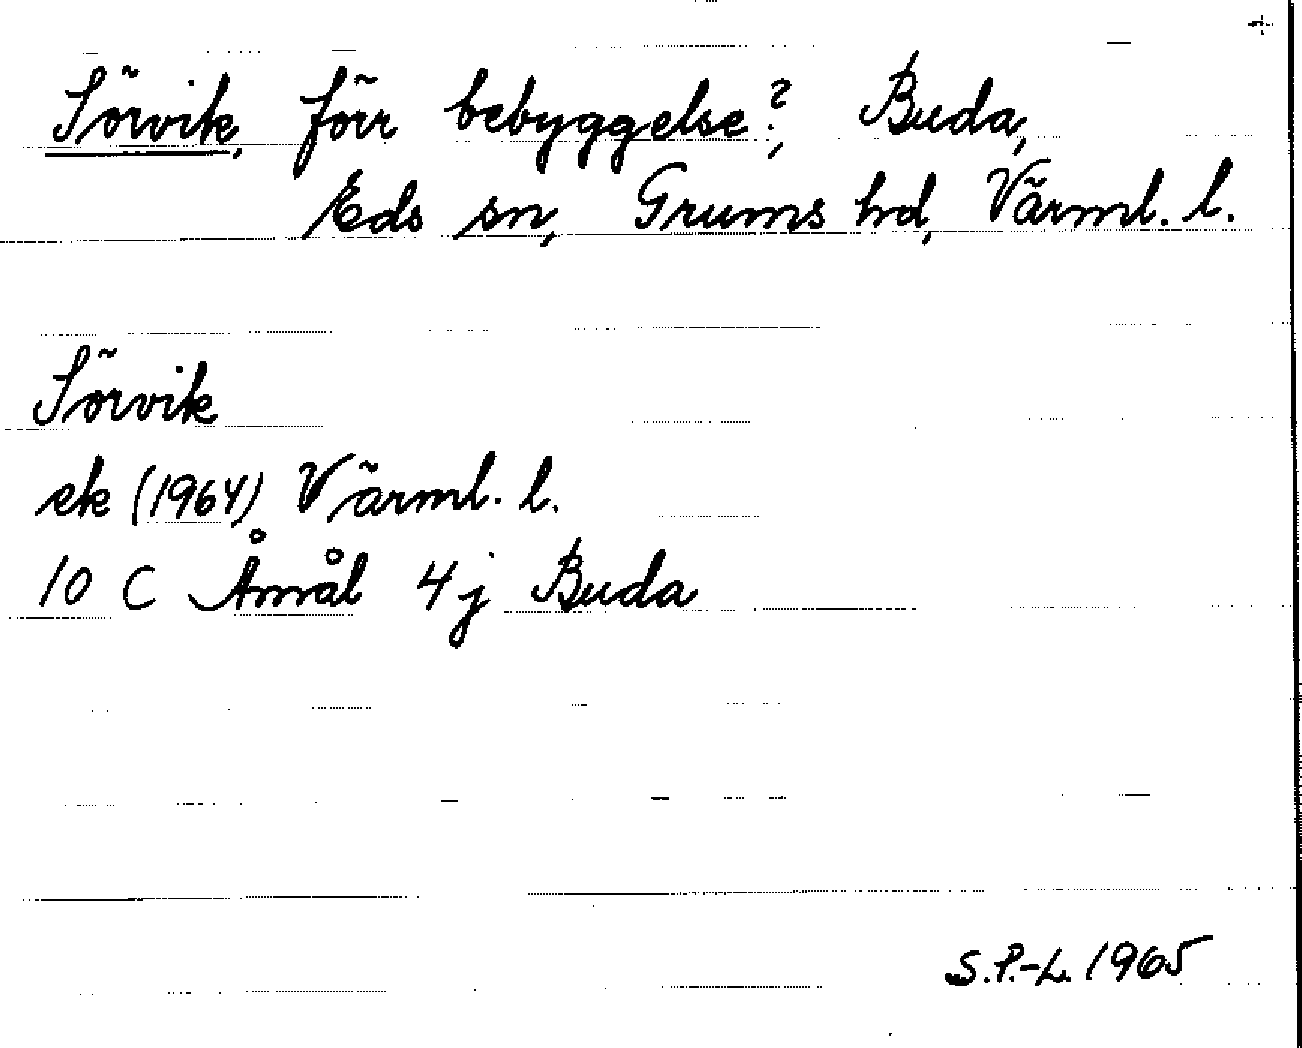 Sörvik, förr bebyggelse?, Buda,
Eds sn, Grums hd, Värml. l.
Sörvik
ek (1964) Värml. l.
10 C Åmål 4j Buda
S.P.-L. 1965